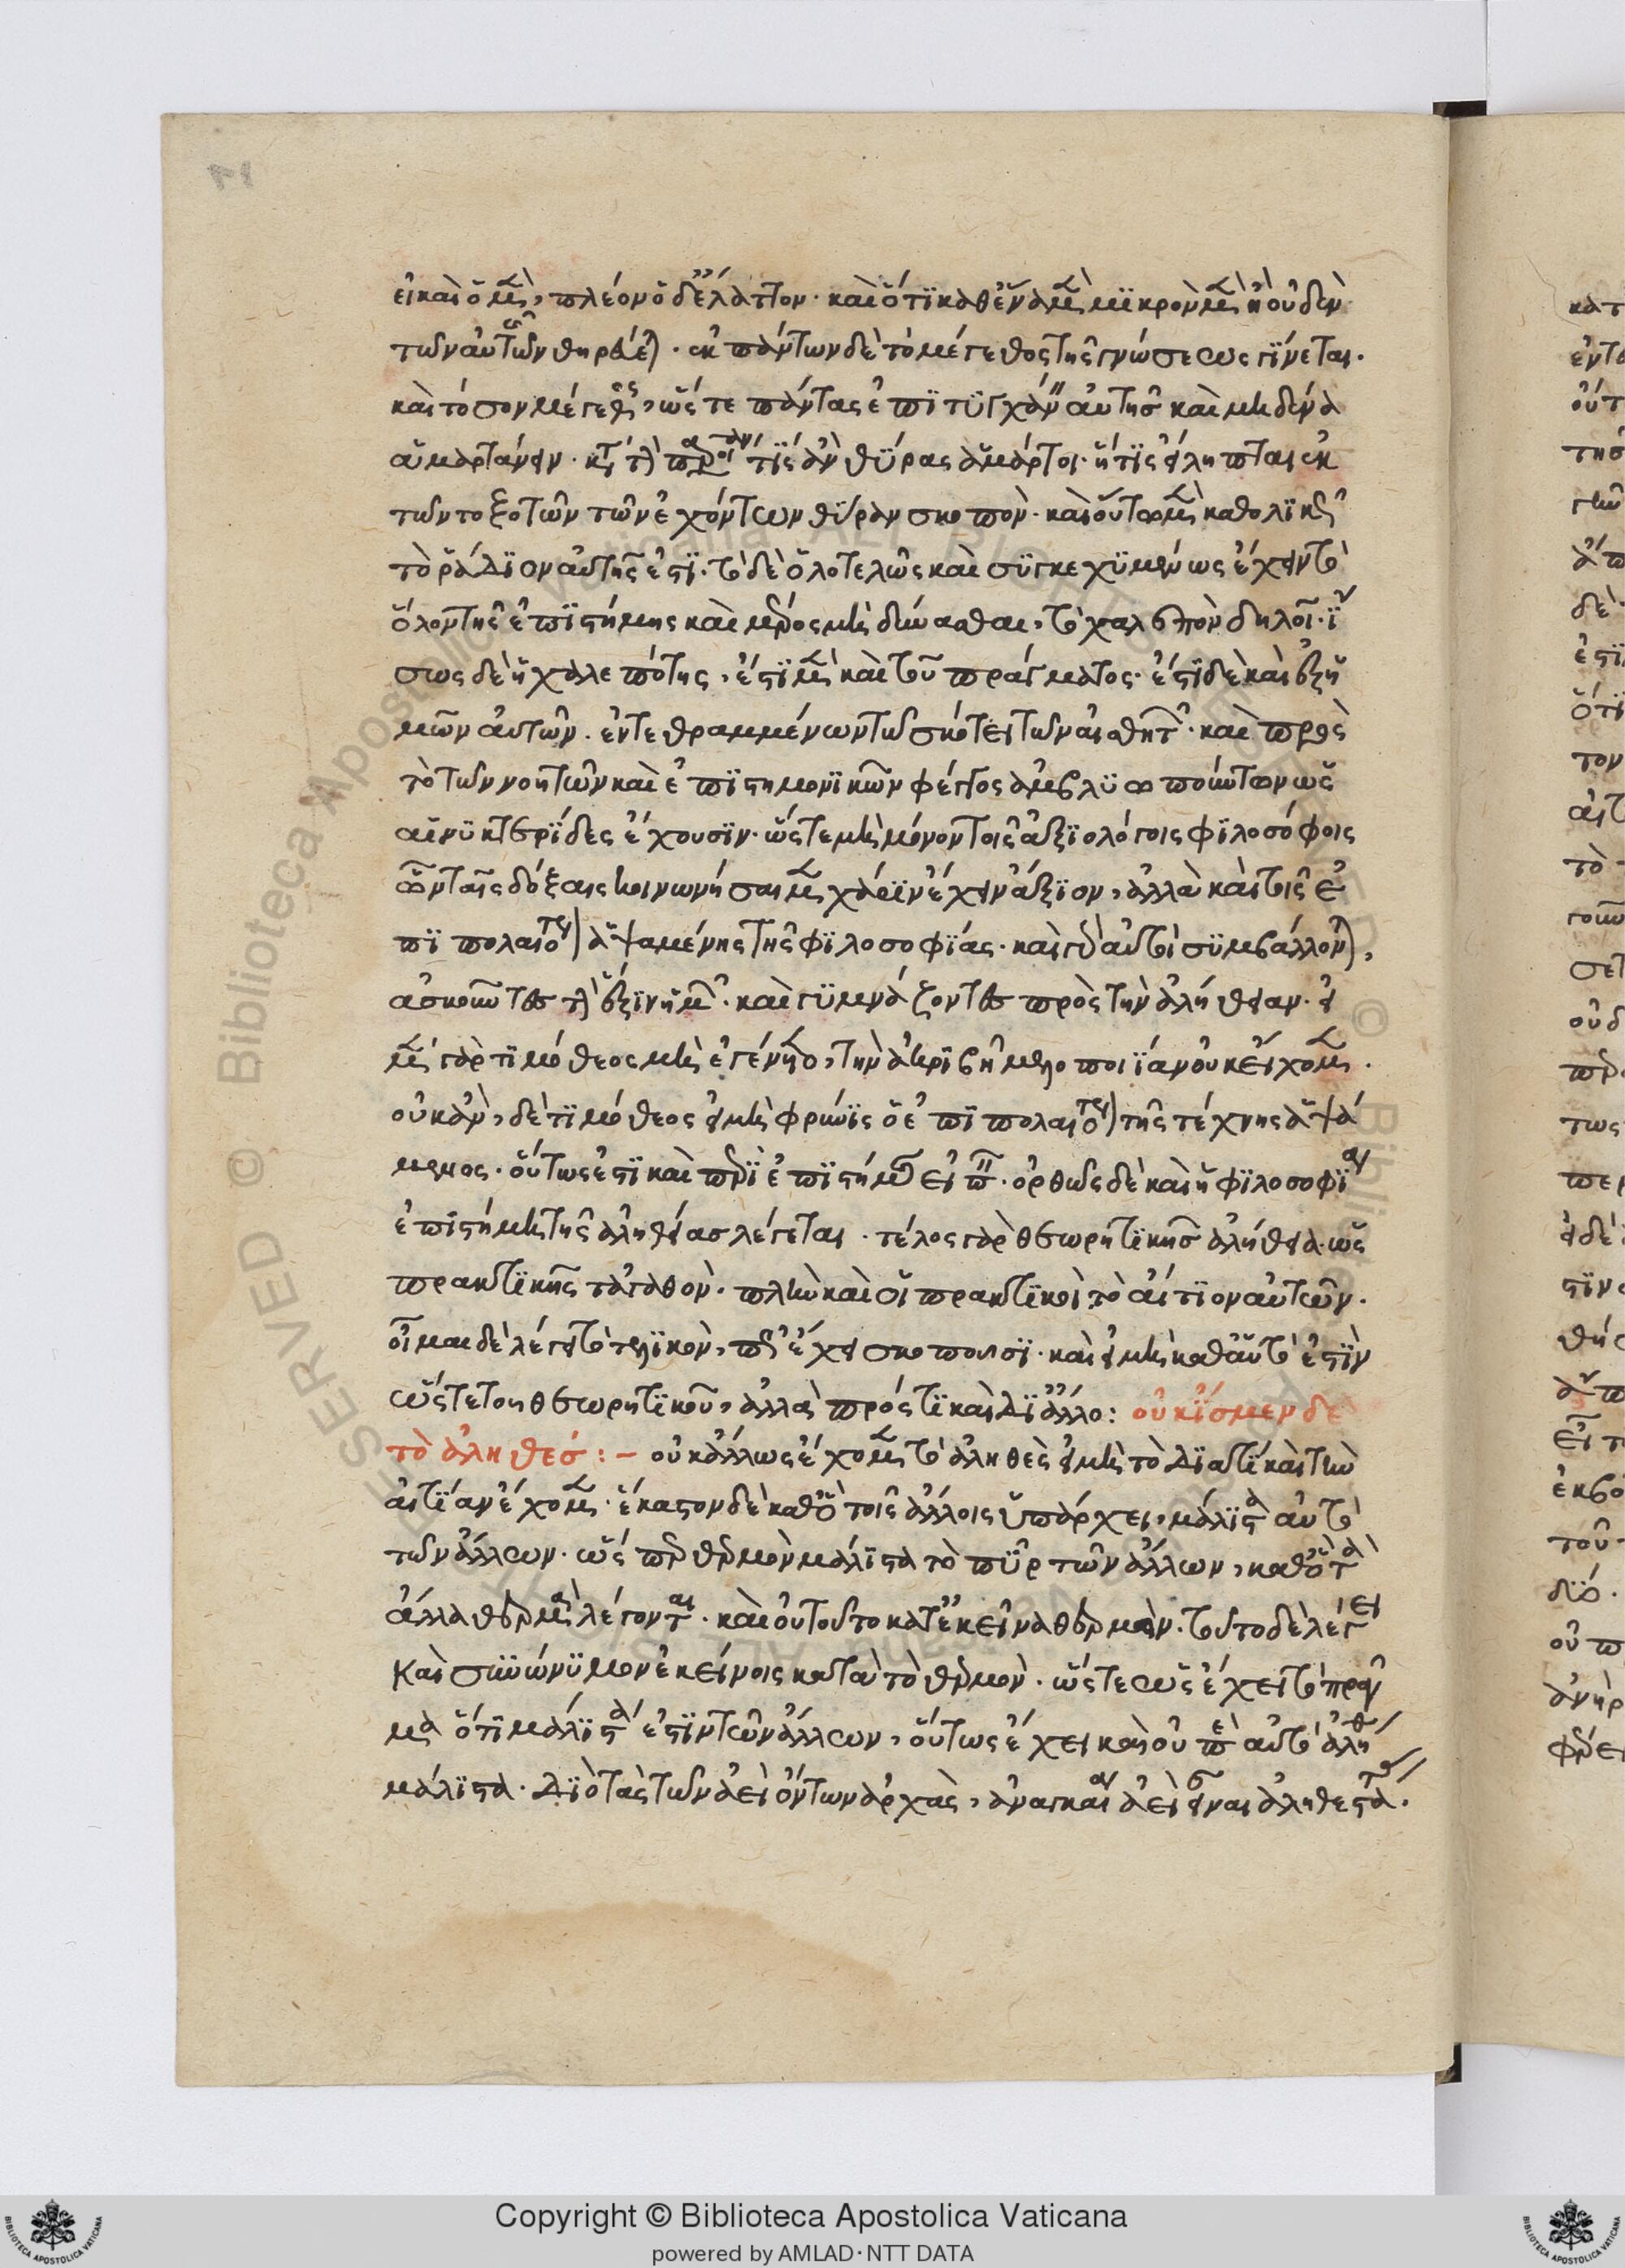 εἰ καὶ ὁ μὲν, πλέον ὁ δὲ ἔλαττον· καὶ ὅτι καθ' ἕνα μὲν μικρὸν μὲν ἢ οὐδὲν
τῶν αὐτῶν θηρᾶται· ἐκ πάντων δὲ τὸ μέγεθος τῆς γνώσεως γίνεται·
καὶ τόσον μέγεθος, ὥστε πάντας ἐπιτυγχάνειν αὐτῆς καὶ μηδένα
ἁμαρτάνειν· κατὰ τὴν παροιμίαν τίς ἂν θύρας ἁμάρτοι· ἥτις εἴληπται ἐκ
τῶν τοξοτῶν τῶν ἐχόντων θύραν σκοπόν· καὶ οὕτω μὲν καθολικῶς
τὸ ῥάδιον αὐτῆς ἐστί· τὸ δὲ ὁλοτελῶς καὶ συγκεχυμένως ἔχειν τὸ
ὅλον τῆς ἐπιστήμης καὶ μέρος μὴ δύνασθαι, τὸ χαλεπὸν δηλοῖ· ἴ
σως δὲ ἡ χαλεπότης, ἔστι μὲν καὶ τοῦ πράγματος· ἔστι δὲ καὶ ἐξ ἡ
μῶν αὐτῶν· ἐντεθραμμένων τῷ σκότει τῶν αἰσθητῶν· καὶ πρὸς
τὸ τῶν νοητῶν καὶ ἐπιστημονικῶν φέγγος ἀμβλυωποιούντων ὡς
αἱ νυκτερίδες ἔχουσιν· ὥστε μὴ μόνον τοῖς ἀξιολόγοις φιλοσόφοις
ὧν ταῖς δόξαις κοινωνήσαιμεν χάριν ἔχειν ἄξιον, ἀλλὰ καὶ τοῖς ἐ
πιπολαιότερον ἁψαμένης τῆς φιλοσοφίας· καὶ γὰρ αὐτοὶ συμβάλλονται,
ἀσκοῦντες τὴν ἕξιν ἡμῶν· καὶ γυμνάζοντες πρὸς τὴν ἀλήθειαν· εἰ
μὲν γὰρ τιμόθεος μὴ ἐγένετο, τὴν ἀκριβῆ μελοποιίαν οὐκ εἴχομεν·
οὐκ ἂν, δὲ τιμόθεος εἰ μὴ φρύνις ὁ ἐπιπολαιότερον τῆς τέχνης ἁψά
μενος· οὕτως ἐστὶ καὶ περὶ ἐπιστήμης εἰπεῖν· ὀρθῶς δὲ καὶ ἡ φιλοσοφία
ἐπιστήμη τῆς ἀληθείας λέγεται· τέλος γὰρ θεωρητικῆς ἀλήθεια· ὡς
πρακτικῆς τἀγαθὸν· πλὴν καὶ οἱ πρακτικοὶ τὸ αἴτιον αὐτῶν·
οἶμαι δὲ λέγει τὸ τελικὸν, πῶς ἔχει σκοποῦσι· καὶ εἰ μὴ καθ' αὑτὸ ἐστὶν
ὥστε τοῦ θεωρητικοῦ, ἀλλὰ πρός τι καὶ δι' ἄλλο: οὐκ ἴσμεν δὲ
τὸ ἀληθές :– οὐκ ἄλλως ἔχομεν τὸ ἀληθὲς εἰ μὴ τὸ διατί καὶ τὴν
αἰτίαν ἔχομεν· ἕκαστον δὲ καθ' ὃ τοῖς ἄλλοις ὑπάρχει, μάλιστα αὐτὸ
τῶν ἄλλων· ὡς περ θερμὸν μάλιστα τὸ πῦρ τῶν ἄλλων, καθ' ὃ τὰ
ἄλλα θερμὰ λέγονται· καὶ οὐ τοῦτο κατ' ἐκεῖνα θερμόν· τοῦτο δὲ λέγει
καὶ συνώνυμον ἐκείνοις κατὰ τὸ θερμὸν· ὥστε ὡς ἔχει τὸ πρᾶγ
μα ὅτι μάλιστα ἐστὶν τῶν ἄλλων, οὕτως ἔχει καὶ οὗ αὐτὸ ἀληθὲς
μάλιστα· διὸ τὰς τῶν ἀεὶ ὄντων ἀρχὰς, ἀναγκαῖον ἀεὶ εἶναι ἀληθεστάτας·